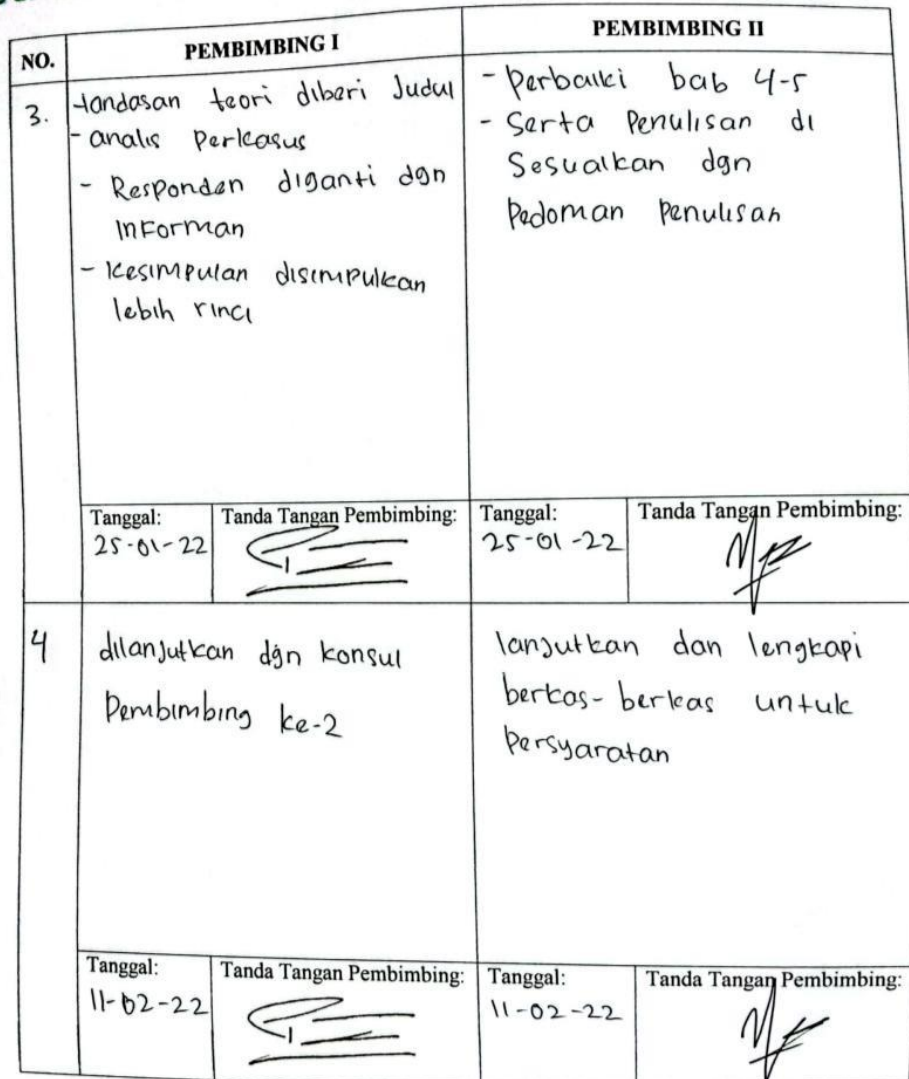 NO.
PEMBIMBING I
PEMBIMBING II
3.
-Landasan teori diberi Judul
- analis Perkasus
- Responden diganti dgn
Informan
- Kesimpulan disimpulkan
lebih rinci
- Perbaiki bab 4-5
- Serta Penulisan di
Sesuaikan dgn
Pedoman Penulisan
Tanggal:
25-01-22
Tanda Tangan Pembimbing:
Tanggal:
25-01-22
Tanda Tangan Pembimbing:
4
dilanjutkan dgn konsul
Pembimbing ke-2
lanjutkan dan lengkapi
berkas-berkas untuk
Persyaratan
Tanggal:
11-02-22
Tanda Tangan Pembimbing:
Tanggal:
11-02-22
Tanda Tangan Pembimbing: